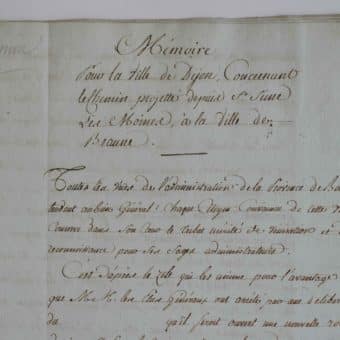 Mémoire
Pour la Ville de Dijon, Concernant
le Chemin projetté depuis St. Seine
Les Moines, à la Ville de
Beaune.
Toutes les vües de l'administration de la Province de
tendent au bien Général: Chaque Citoyen Convaincu de cette
Conserve dans son Cœur le
reconnoissance pour Ses Sages administrateurs.
C'est d'après le zèle qui les anime pour l'avantage
que MM. les Elus Généraux ont arrêté, par une
du qu'il seroit ouvert une nouvelle